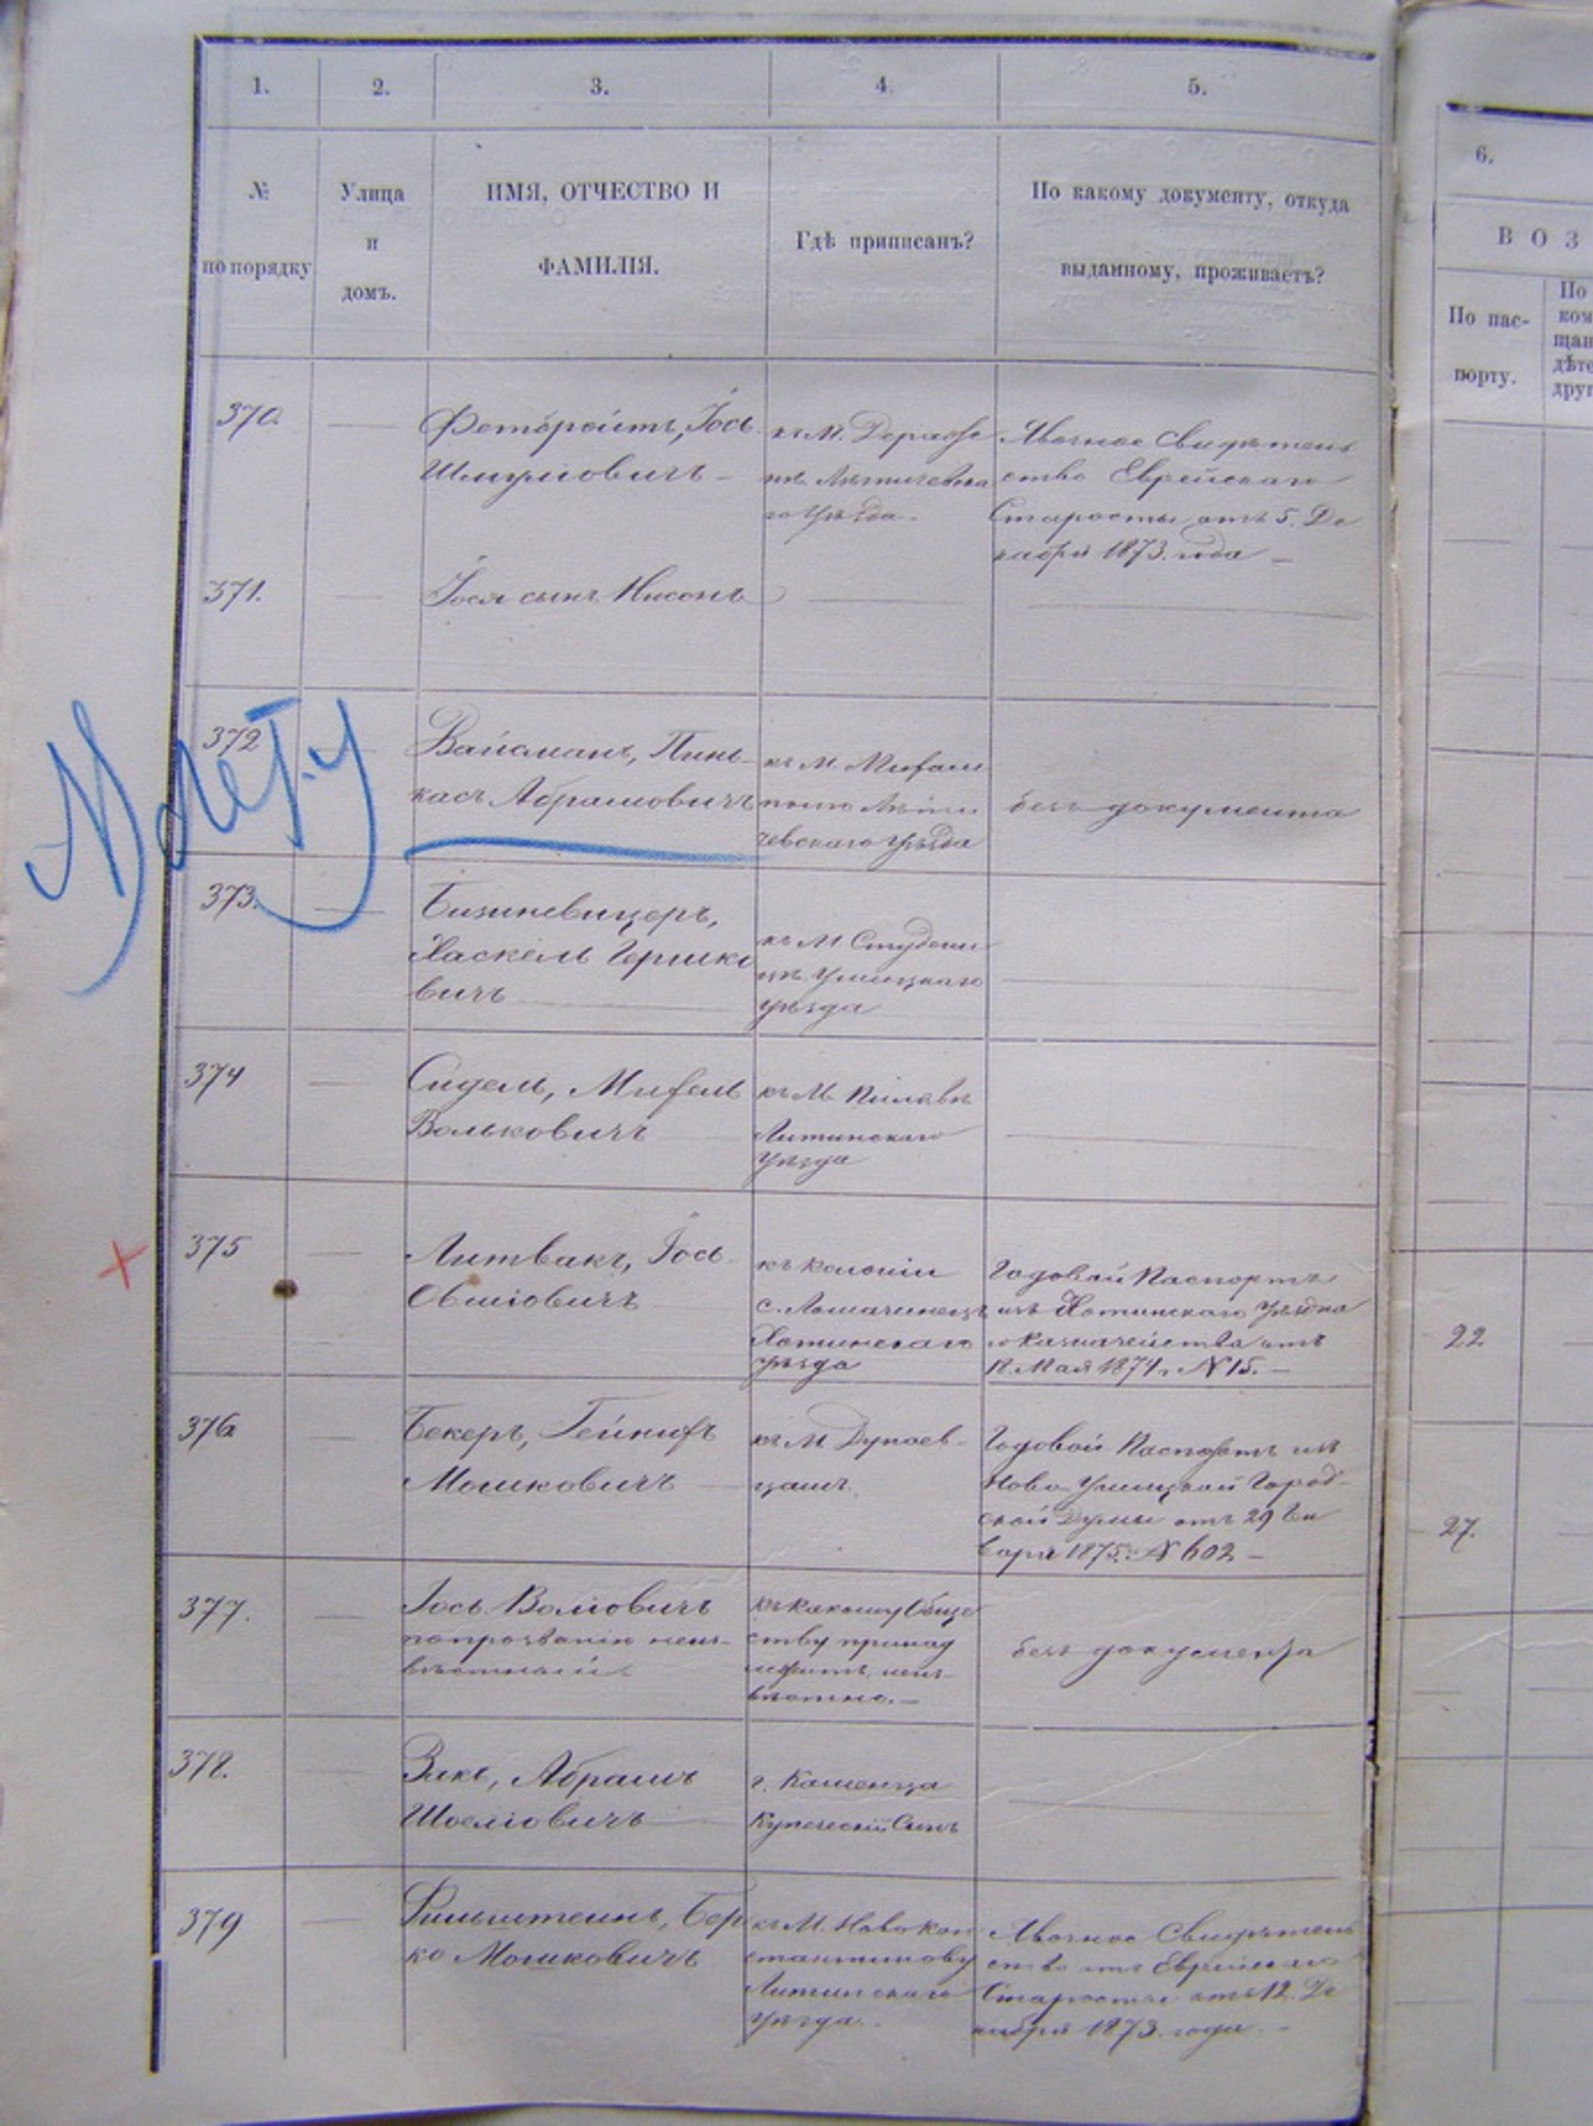 1. 2. 3. 4. 5.
№ по порядку
Улица и домъ.
ИМЯ, ОТЧЕСТВО И
ФАМИЛІЯ.
Гдѣ приписанъ?
По какому документу, откуда
выданному, проживаетъ?
6.
ВОЗ
По пас-
порту.
По
ком
щан
дѣте
друг
370.
Іось
Шмулiовичъ
къ М. Деражн
нѣ Летичевска
го Уѣзда.
Явочное Свидѣтель
ство Еврейскаго
Старосты отъ 5. Де
кабря 1873. года
371.
Іося сынъ Нисонъ
372
Вайсманъ, Пинь
касъ Абрамовичъ
къ М. Михаи
полю Лети
чевскаго Уѣзда
безъ документа
373.
Хаскель Гершко
вичъ
къ М. Студени
цѣ Ушицкаго
уѣзда
374
Сидель, Михель
Вольковичъ
къ М. Пилявѣ
Литинскаго
Уѣзда
375
Литвакъ, Іось
Овшіовичъ
къ колоніи
с. Ломачинецъ
Хотинскаго
уѣзда
Годовой Паспортъ
изъ Хотинскаго Уѣздна
го Казначейства отъ
18 Мая 1874 г. № 15.
22.
376
Бекеръ, Гейнихъ
Мошковичъ
къ М. Дунаев-
цамъ
Годовой Паспортъ изъ
Ново Ушицкой Город-
ской Думы отъ 29 Ян
варя 1875 г. № 602
27.
377.
Іось Волiовичъ
попрозванію неиз-
вѣстный
къ какому Обще
ству принад
лежитъ, неиз-
вѣстно.
безъ документа
378.
Закъ, Абрамъ
Шоеліовичъ
г. Каменца
Купеческій Сынъ
379
Бер
ко Мошковичъ
къ М. Новокон
стантинову
Литинскаго
Уѣзда.
Явочное Свидѣтель
ство отъ Еврейскаго
Старосты отъ 12. Де
кабря 1873. года.